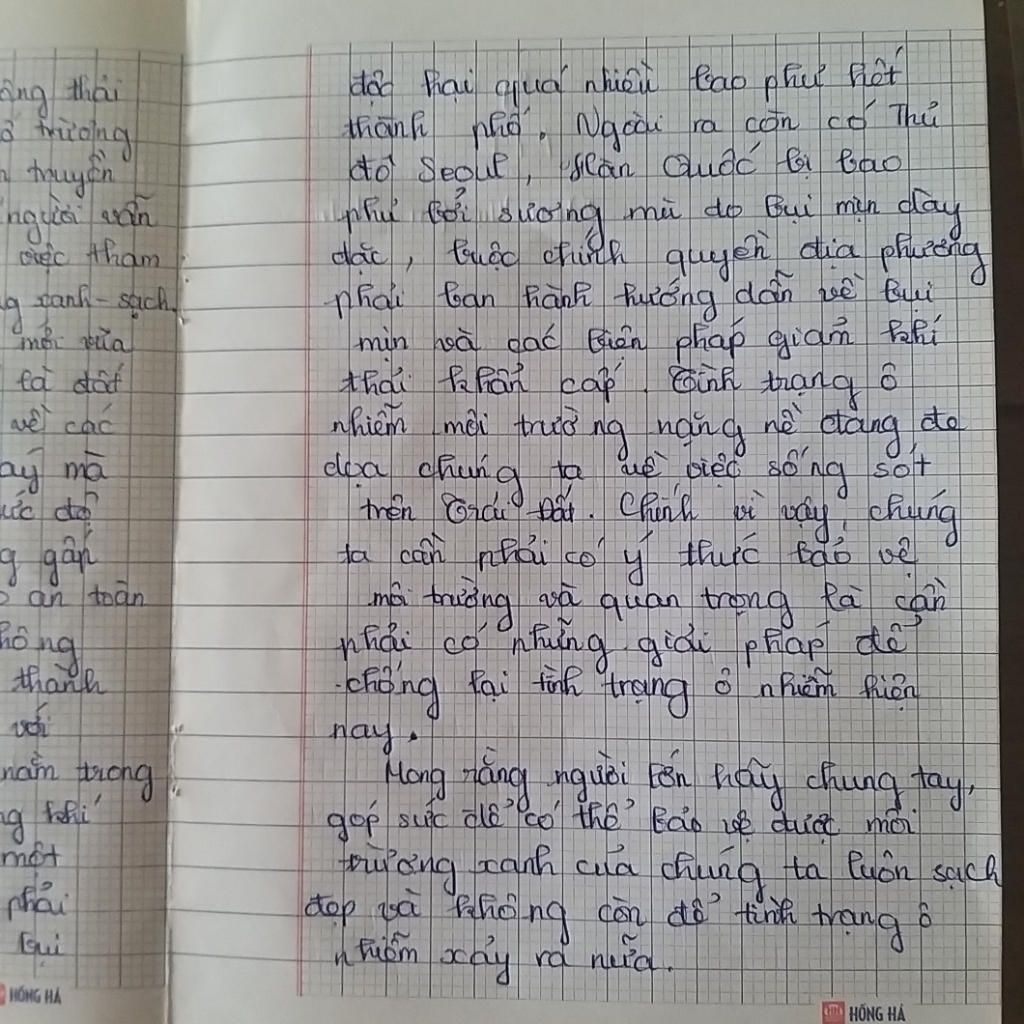 ông thái
trường
truyền
người vẫn
việc tham
g xanh - sạch
mới vừa
là đốt
về các
ấy mà
ước độ
g gấp
an toàn
hông
thành
với
nằm trong
ng khí
một
phải
bụi
HỒNG HÀ
độc hại quá nhiều bao phủ hết
thành phố. Ngoài ra còn có Thủ
đô Seoul, Hàn Quốc bị bao
phủ bởi sương mù do bụi mịn dày
đặc, buộc chính quyền địa phương
phải ban hành hướng dẫn về bụi
mịn và các biện pháp giảm khí
thải khẩn cấp. Tình trạng ô
nhiễm môi trường nặng nề đang đe
dọa chúng ta về việc sống sót
trên Trái Đất. Chính vì vậy, chúng
ta cần phải có ý thức bảo vệ
môi trường và quan trọng là cần
phải có những giải pháp để
chống lại tình trạng ô nhiễm hiện
nay.
Mong rằng người lớn hãy chung tay,
góp sức để có thể bảo vệ được môi
trường xanh của chúng ta luôn sạch
đẹp và không còn để tình trạng ô
nhiễm xảy ra nữa.
HỒNG HÀ